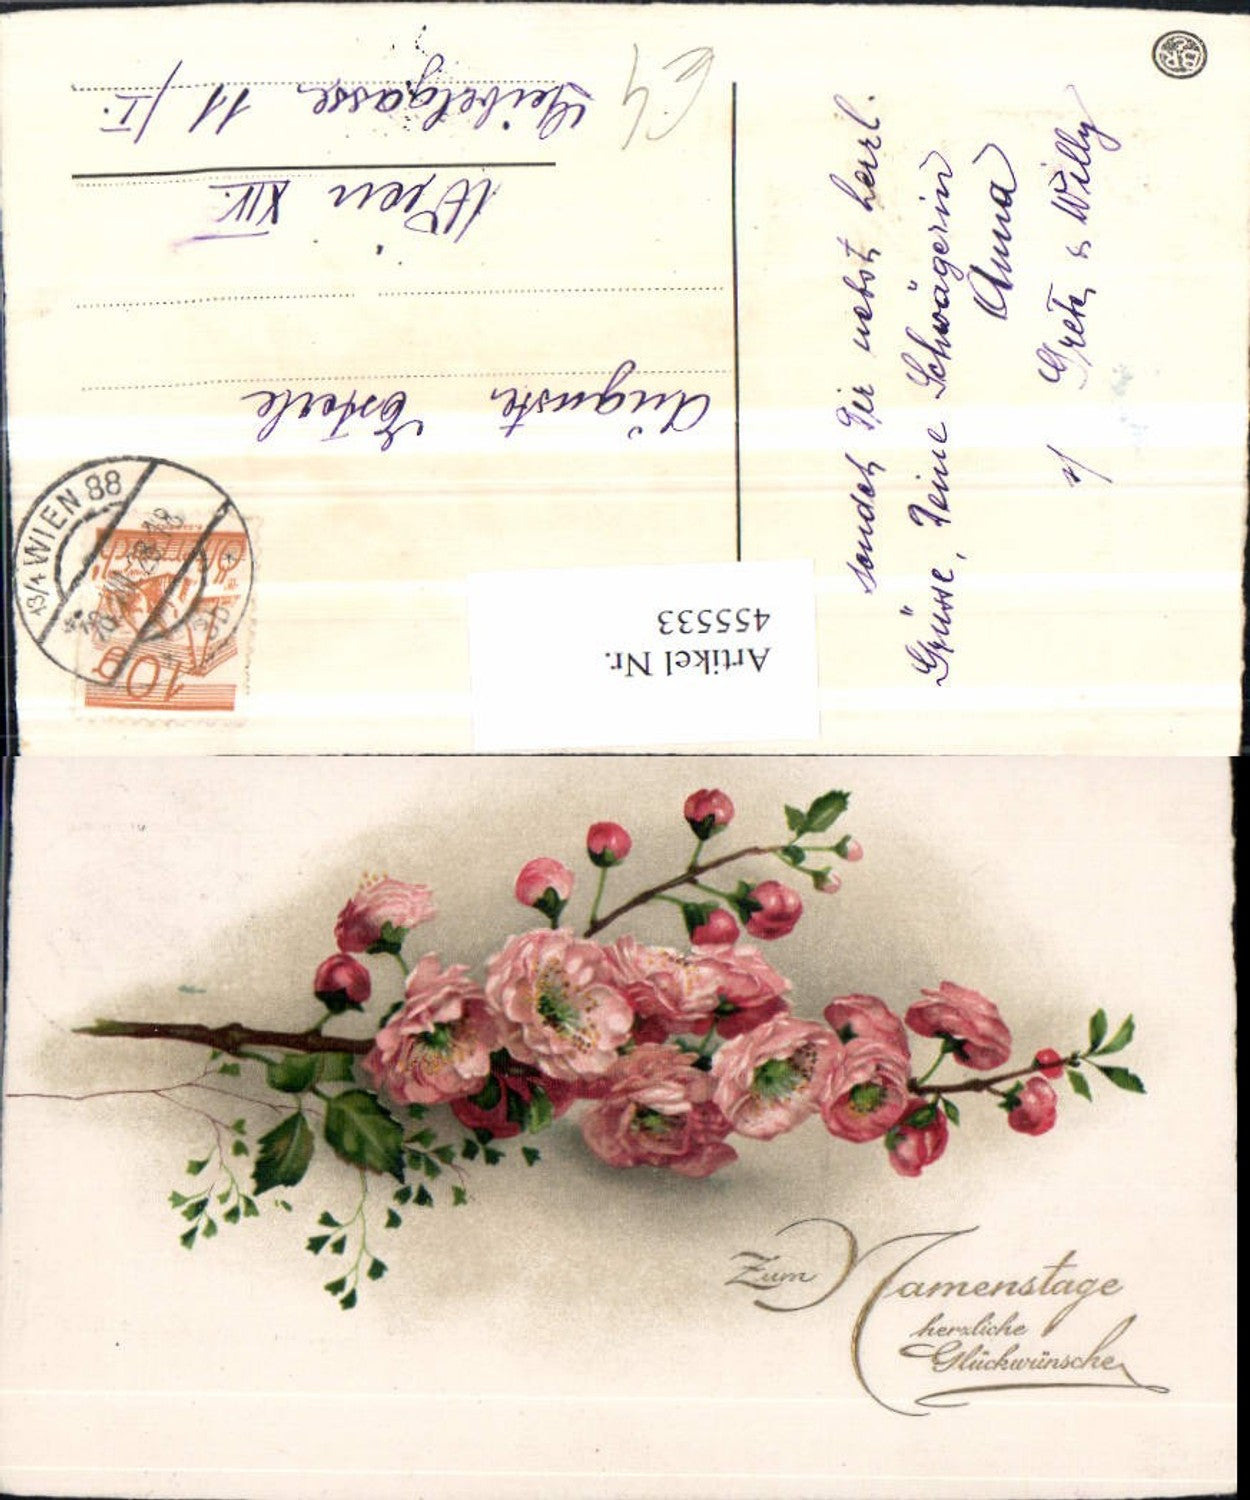 sendet Dir nebst herzl.
Grüsse, Deine Schwägerin
Anna
Grete & Willy
Auguste Esterle
Wien XIV.
Geibelgasse 11/I.
€4
Artikel Nr.
455533
13/4 WIEN 88
10g
Zum Namenstage
herzliche
Glückwünsche